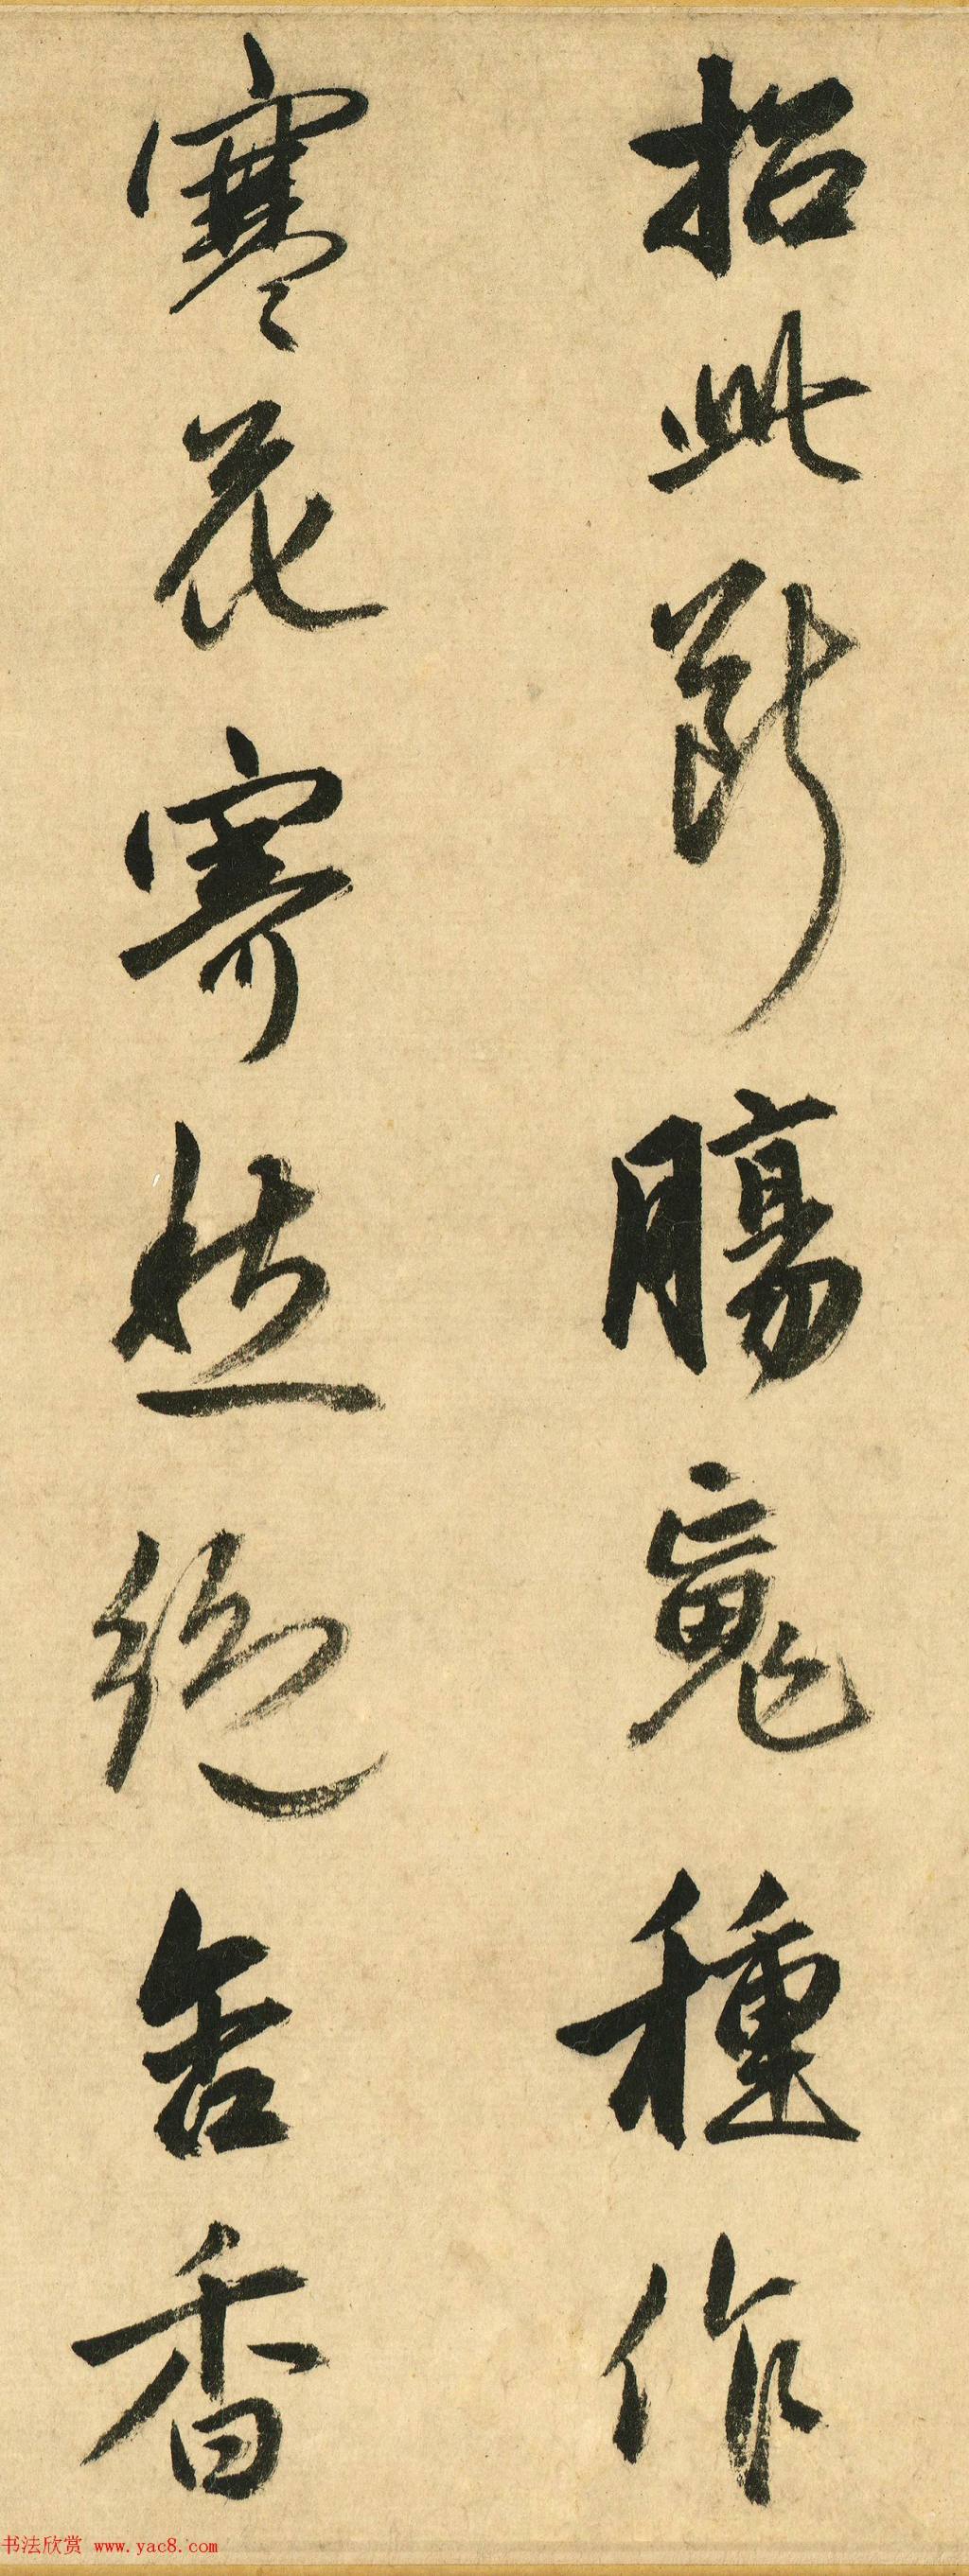 招此斷腸䰟種作
寒花寄愁絕含香
书法欣赏 www.yac8.com